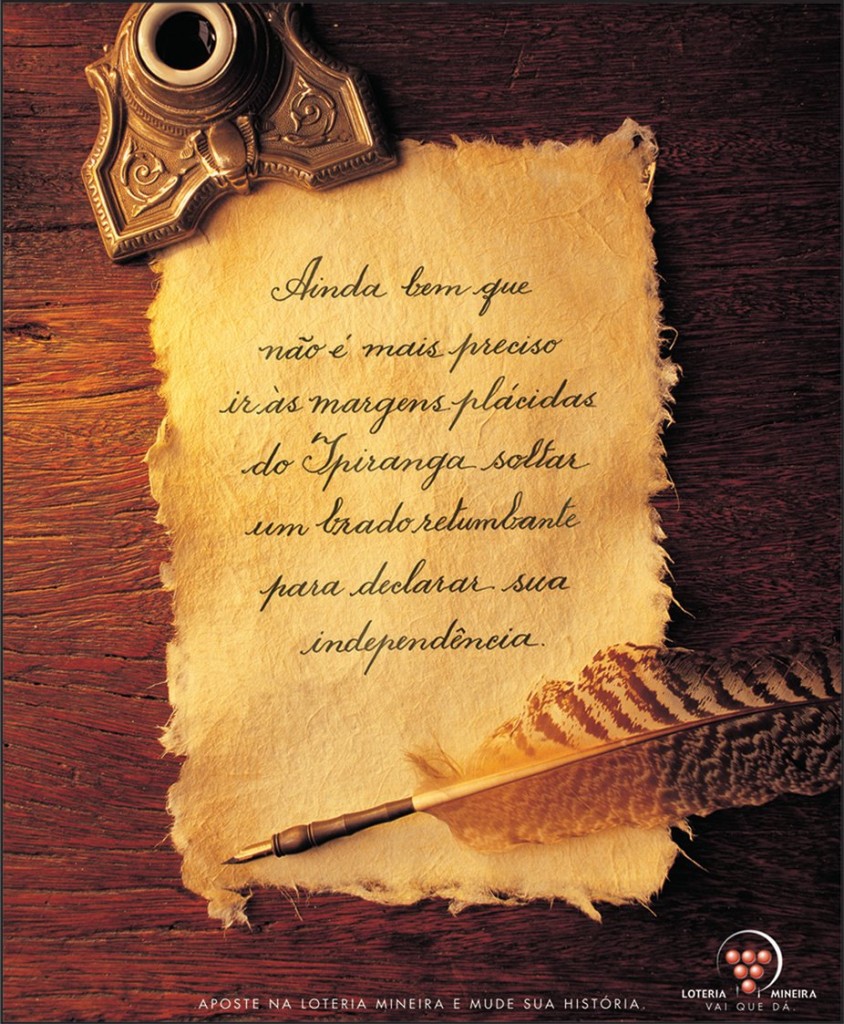 Ainda bem que
não é mais preciso
ir às margens plácidas
do Ipiranga soltar
um brado retumbante
para declarar sua
independência.
LOTERIA MINEIRA
VAI QUE DÁ.
APOSTE NA LOTERIA MINEIRA E MUDE SUA HISTÓRIA.